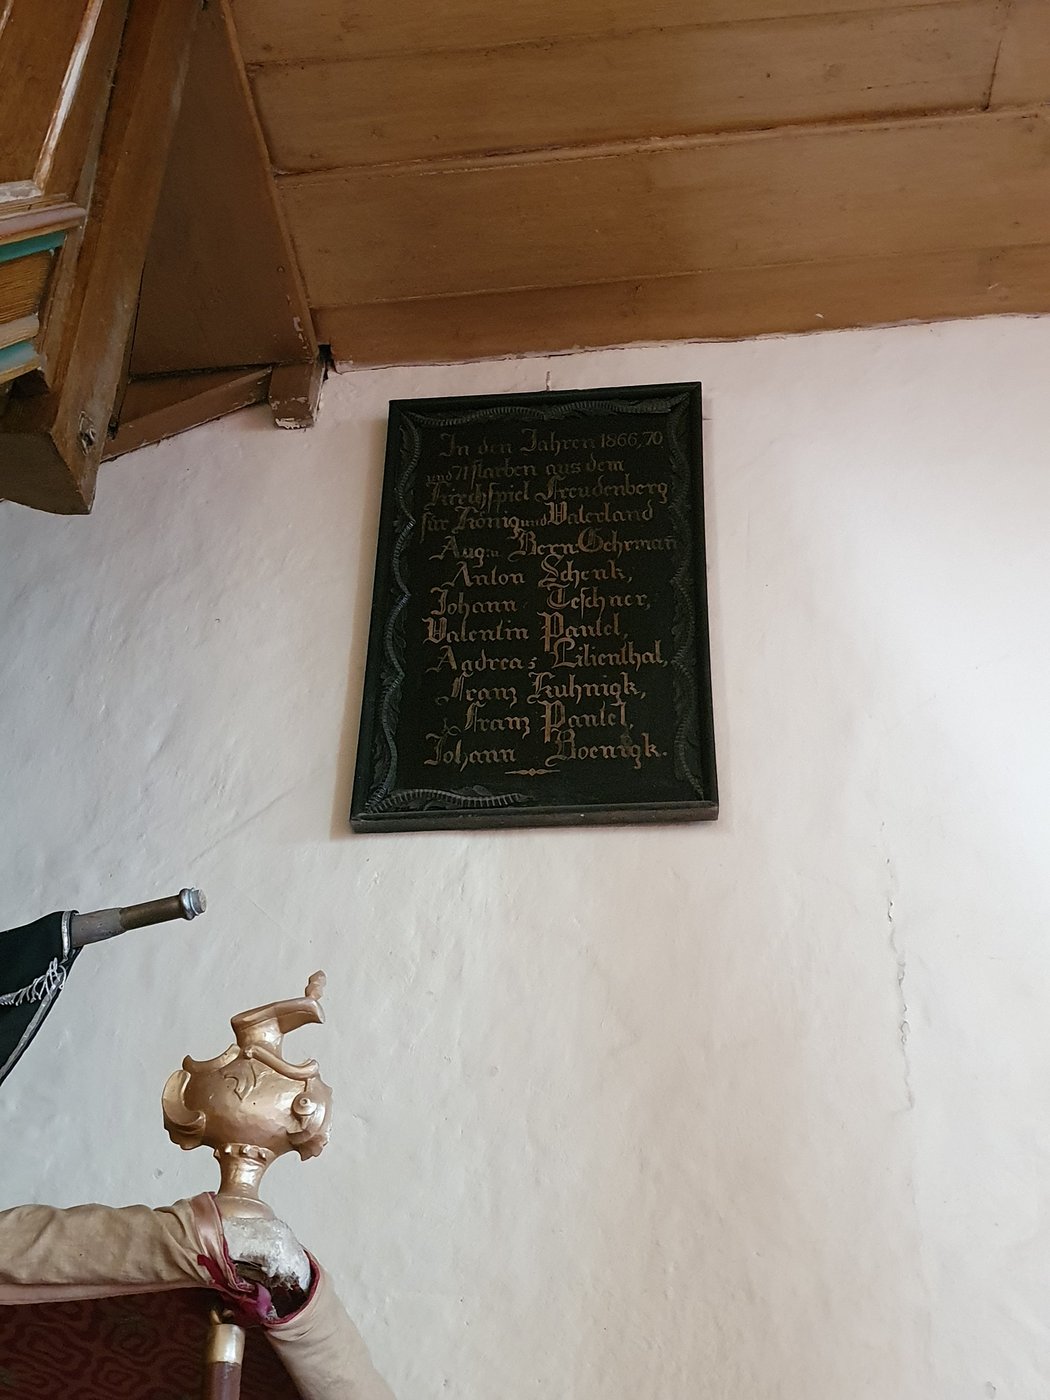 In den Jahren 1866, 70
und 71 starben aus dem
Kirchspiel Freudenberg
für König und Vaterland
Aug. u. Bern. Gehrman̄
Anton Schenk,
Johann Teschner,
Valentin Pantel,
Andreas Lilienthal,
Franz Kuhnigk,
Franz Pantel,
Johann Boenigk.